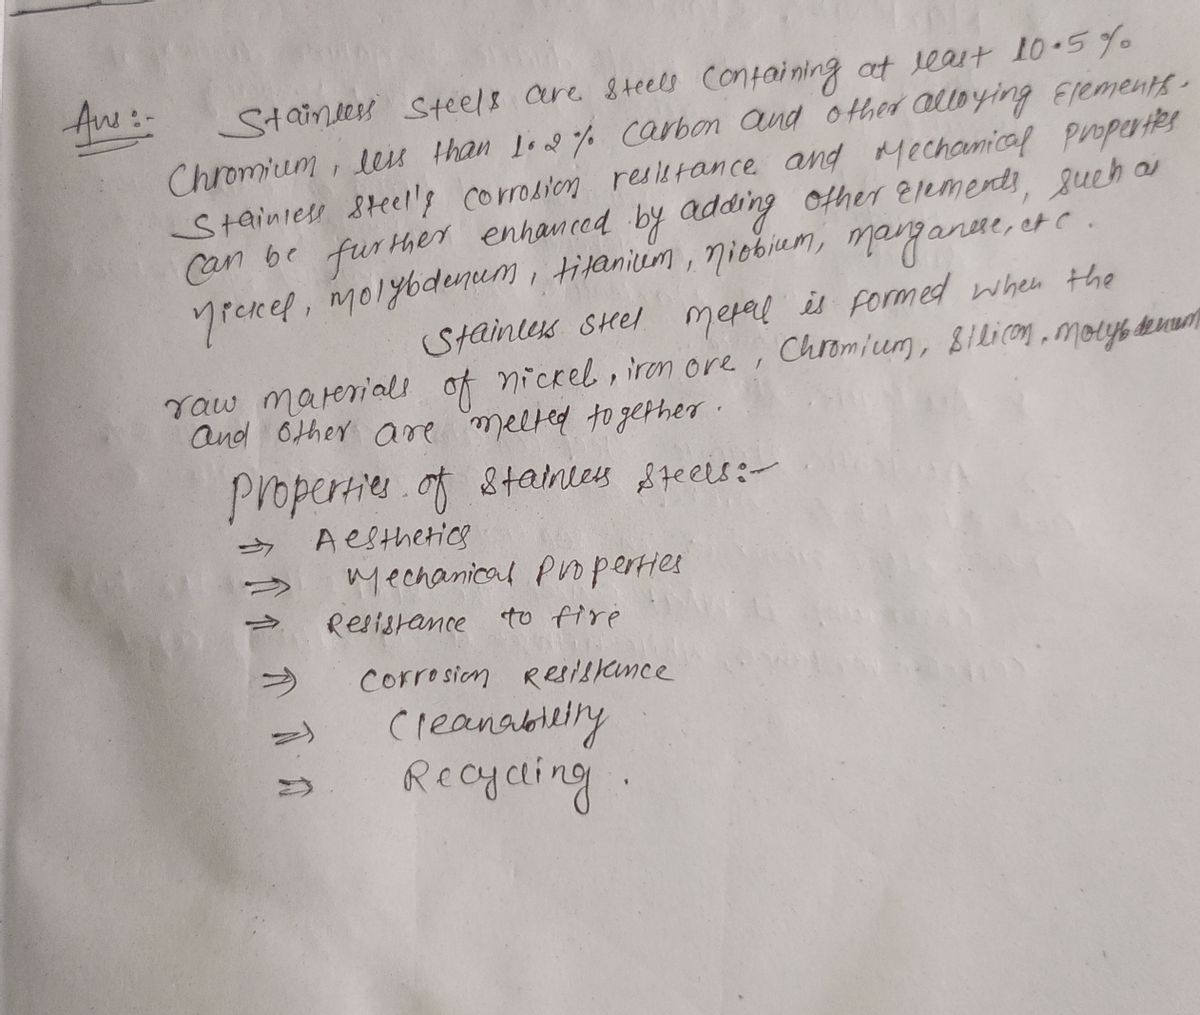 Ans :-  Stainless Steels are steels containing at least 10.5 %
Chromium, less than 1.2 % Carbon and other alloying Elements.
Stainless Steel's corrosion resistance and Mechanical Properties
can be further enhanced by adding other elements, such as
nickel, molybdenum, titanium, niobium, manganese, etc.
Stainless Steel metal is formed when the
raw materials of nickel, iron ore, Chromium, Silicon, molybdenum
and other are melted together.
Properties of Stainless Steels:-
⇒ Aesthetics
⇒ Mechanical Properties
⇒ Resistance to fire
⇒ Corrosion Resistance
⇒ Cleanability
⇒ Recycling.